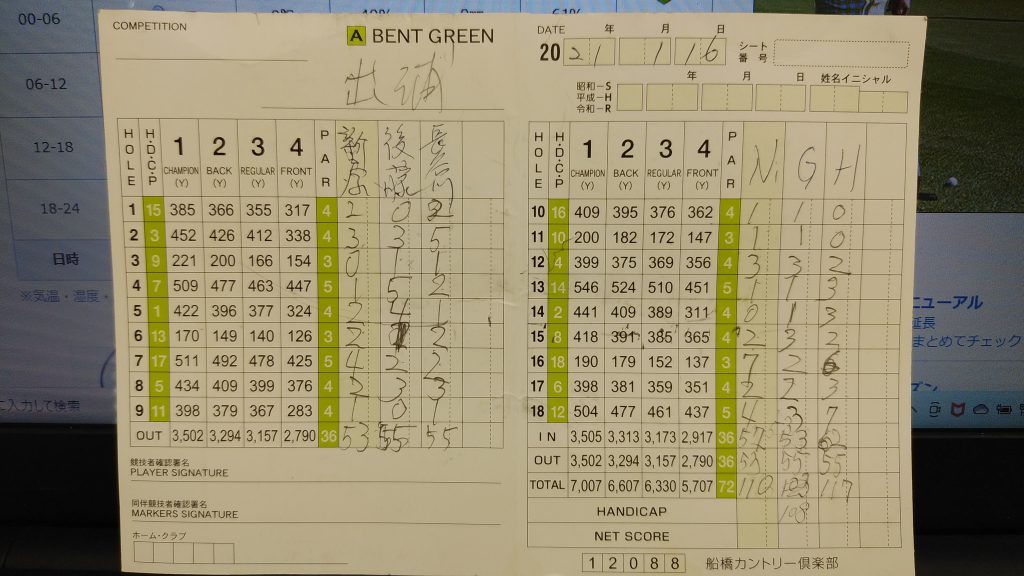 00-06
06-12
12-18
18-24
日時
※気温・湿度・
に入力して検索
COMPETITION
A BENT GREEN
HOLE H.D.C.P 1 CHAMPION (Y) 2 BACK (Y) 3 REGULAR (Y) 4 FRONT (Y) PAR 後藤 長谷川
1 15 385 366 355 317 4 2 0 2
2 3 452 426 412 338 4 3 3 5
3 9 221 200 166 154 3 0 1 1
4 7 509 477 463 447 5 1 5 2
5 1 422 396 377 324 4 2 4 1
6 13 170 149 140 126 3 2 2
7 17 511 492 478 425 5 4 2 2
8 5 434 409 399 376 4 2 3 3
9 11 398 379 367 283 4 1 0 1
OUT 3,502 3,294 3,157 2,790 36 53 55 55
競技者確認署名
PLAYER SIGNATURE
同伴競技者確認署名
MARKERS SIGNATURE
ホーム・クラブ
DATE 年 月 日
20 21 1 16
シート番号
昭和-S
平成-H
令和-R
年 月 日 姓名イニシャル
HOLE H.D.C.P 1 CHAMPION (Y) 2 BACK (Y) 3 REGULAR (Y) 4 FRONT (Y) PAR Ni G H
10 16 409 395 376 362 4 1 1 0
11 10 200 182 172 147 3 1 1 0
12 4 399 375 369 356 4 3 3 2
13 14 546 524 510 451 5 1 1 3
14 2 441 409 389 311 4 0 1 3
15 8 418 391 385 365 4 2 3 2
16 18 190 179 152 137 3 7 2 6
17 6 398 381 359 351 4 2 2 3
18 12 504 477 461 437 5 4 3 7
IN 3,505 3,313 3,173 2,917 36 57 53 62
OUT 3,502 3,294 3,157 2,790 36 55 55
TOTAL 7,007 6,607 6,330 5,707 72 110 117
HANDICAP 108
NET SCORE
12088 船橋カントリー倶楽部
ニューアル
延長
まとめてチェック